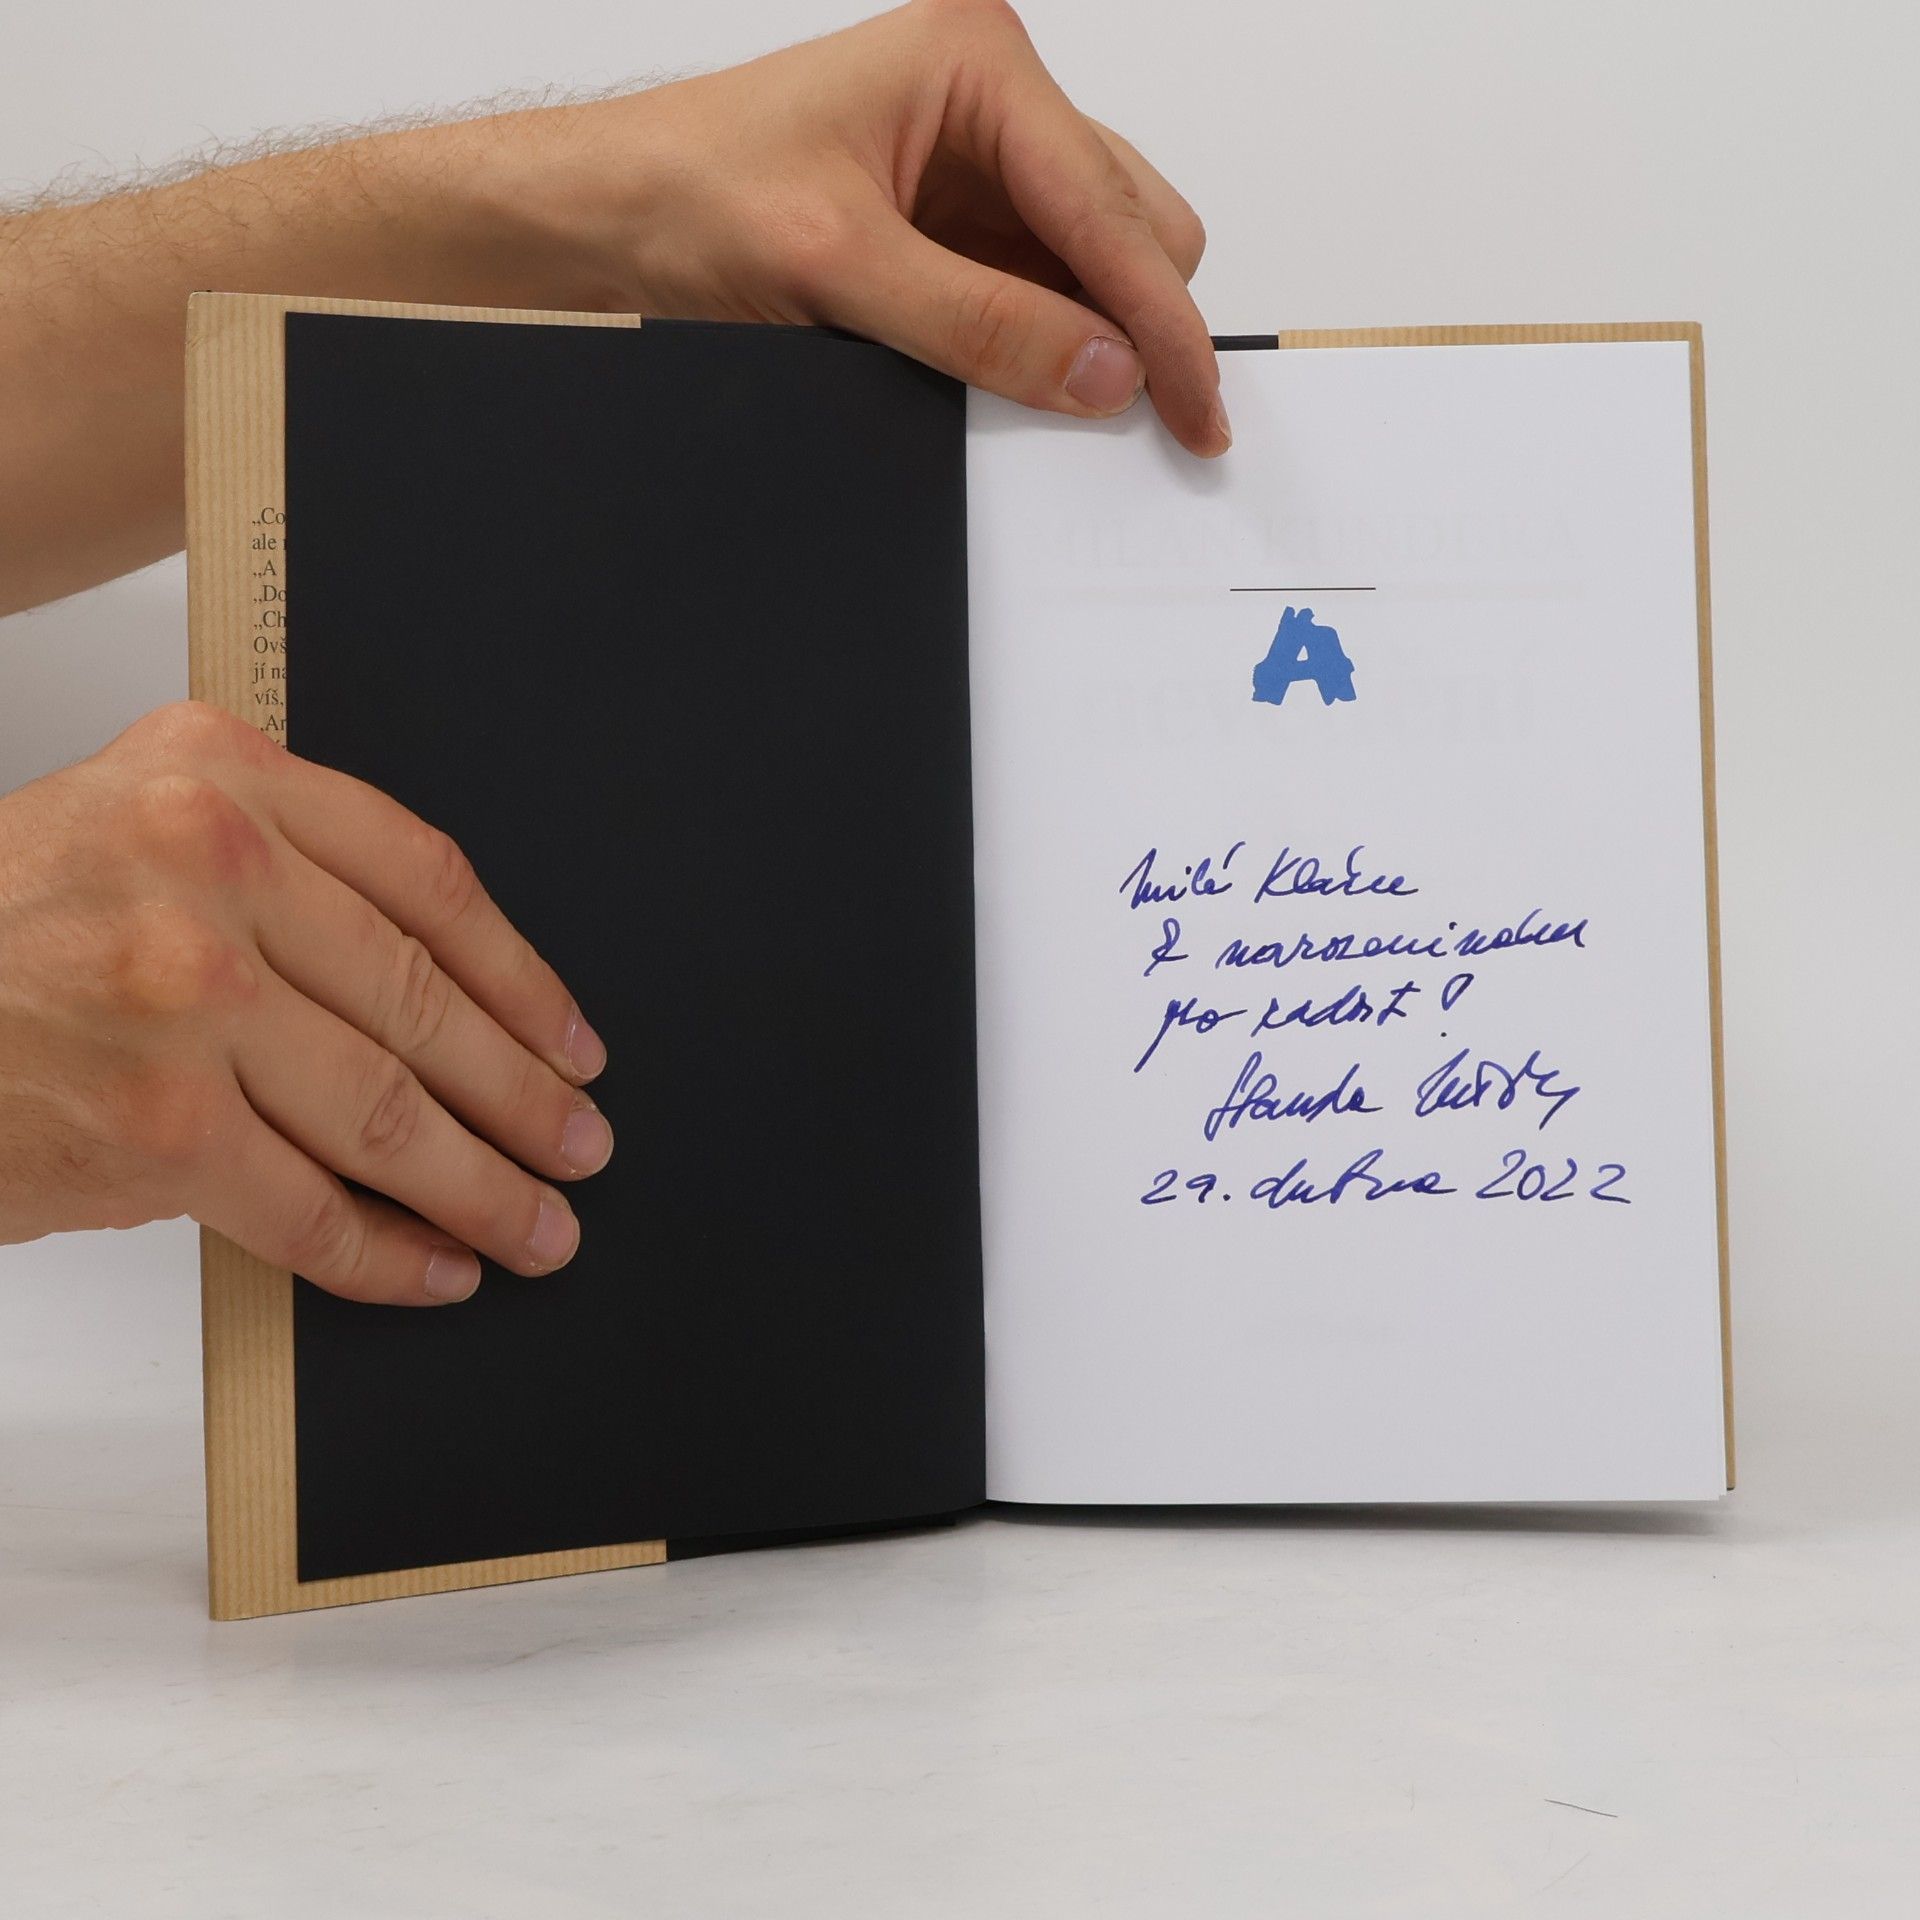 „Co
ale
„A
„Do
„Ch
Ovš
jí na
víš,
„Ar
A
Milé Kláře
k narozeninám
pro radost!
Standa
29. dubna 2022